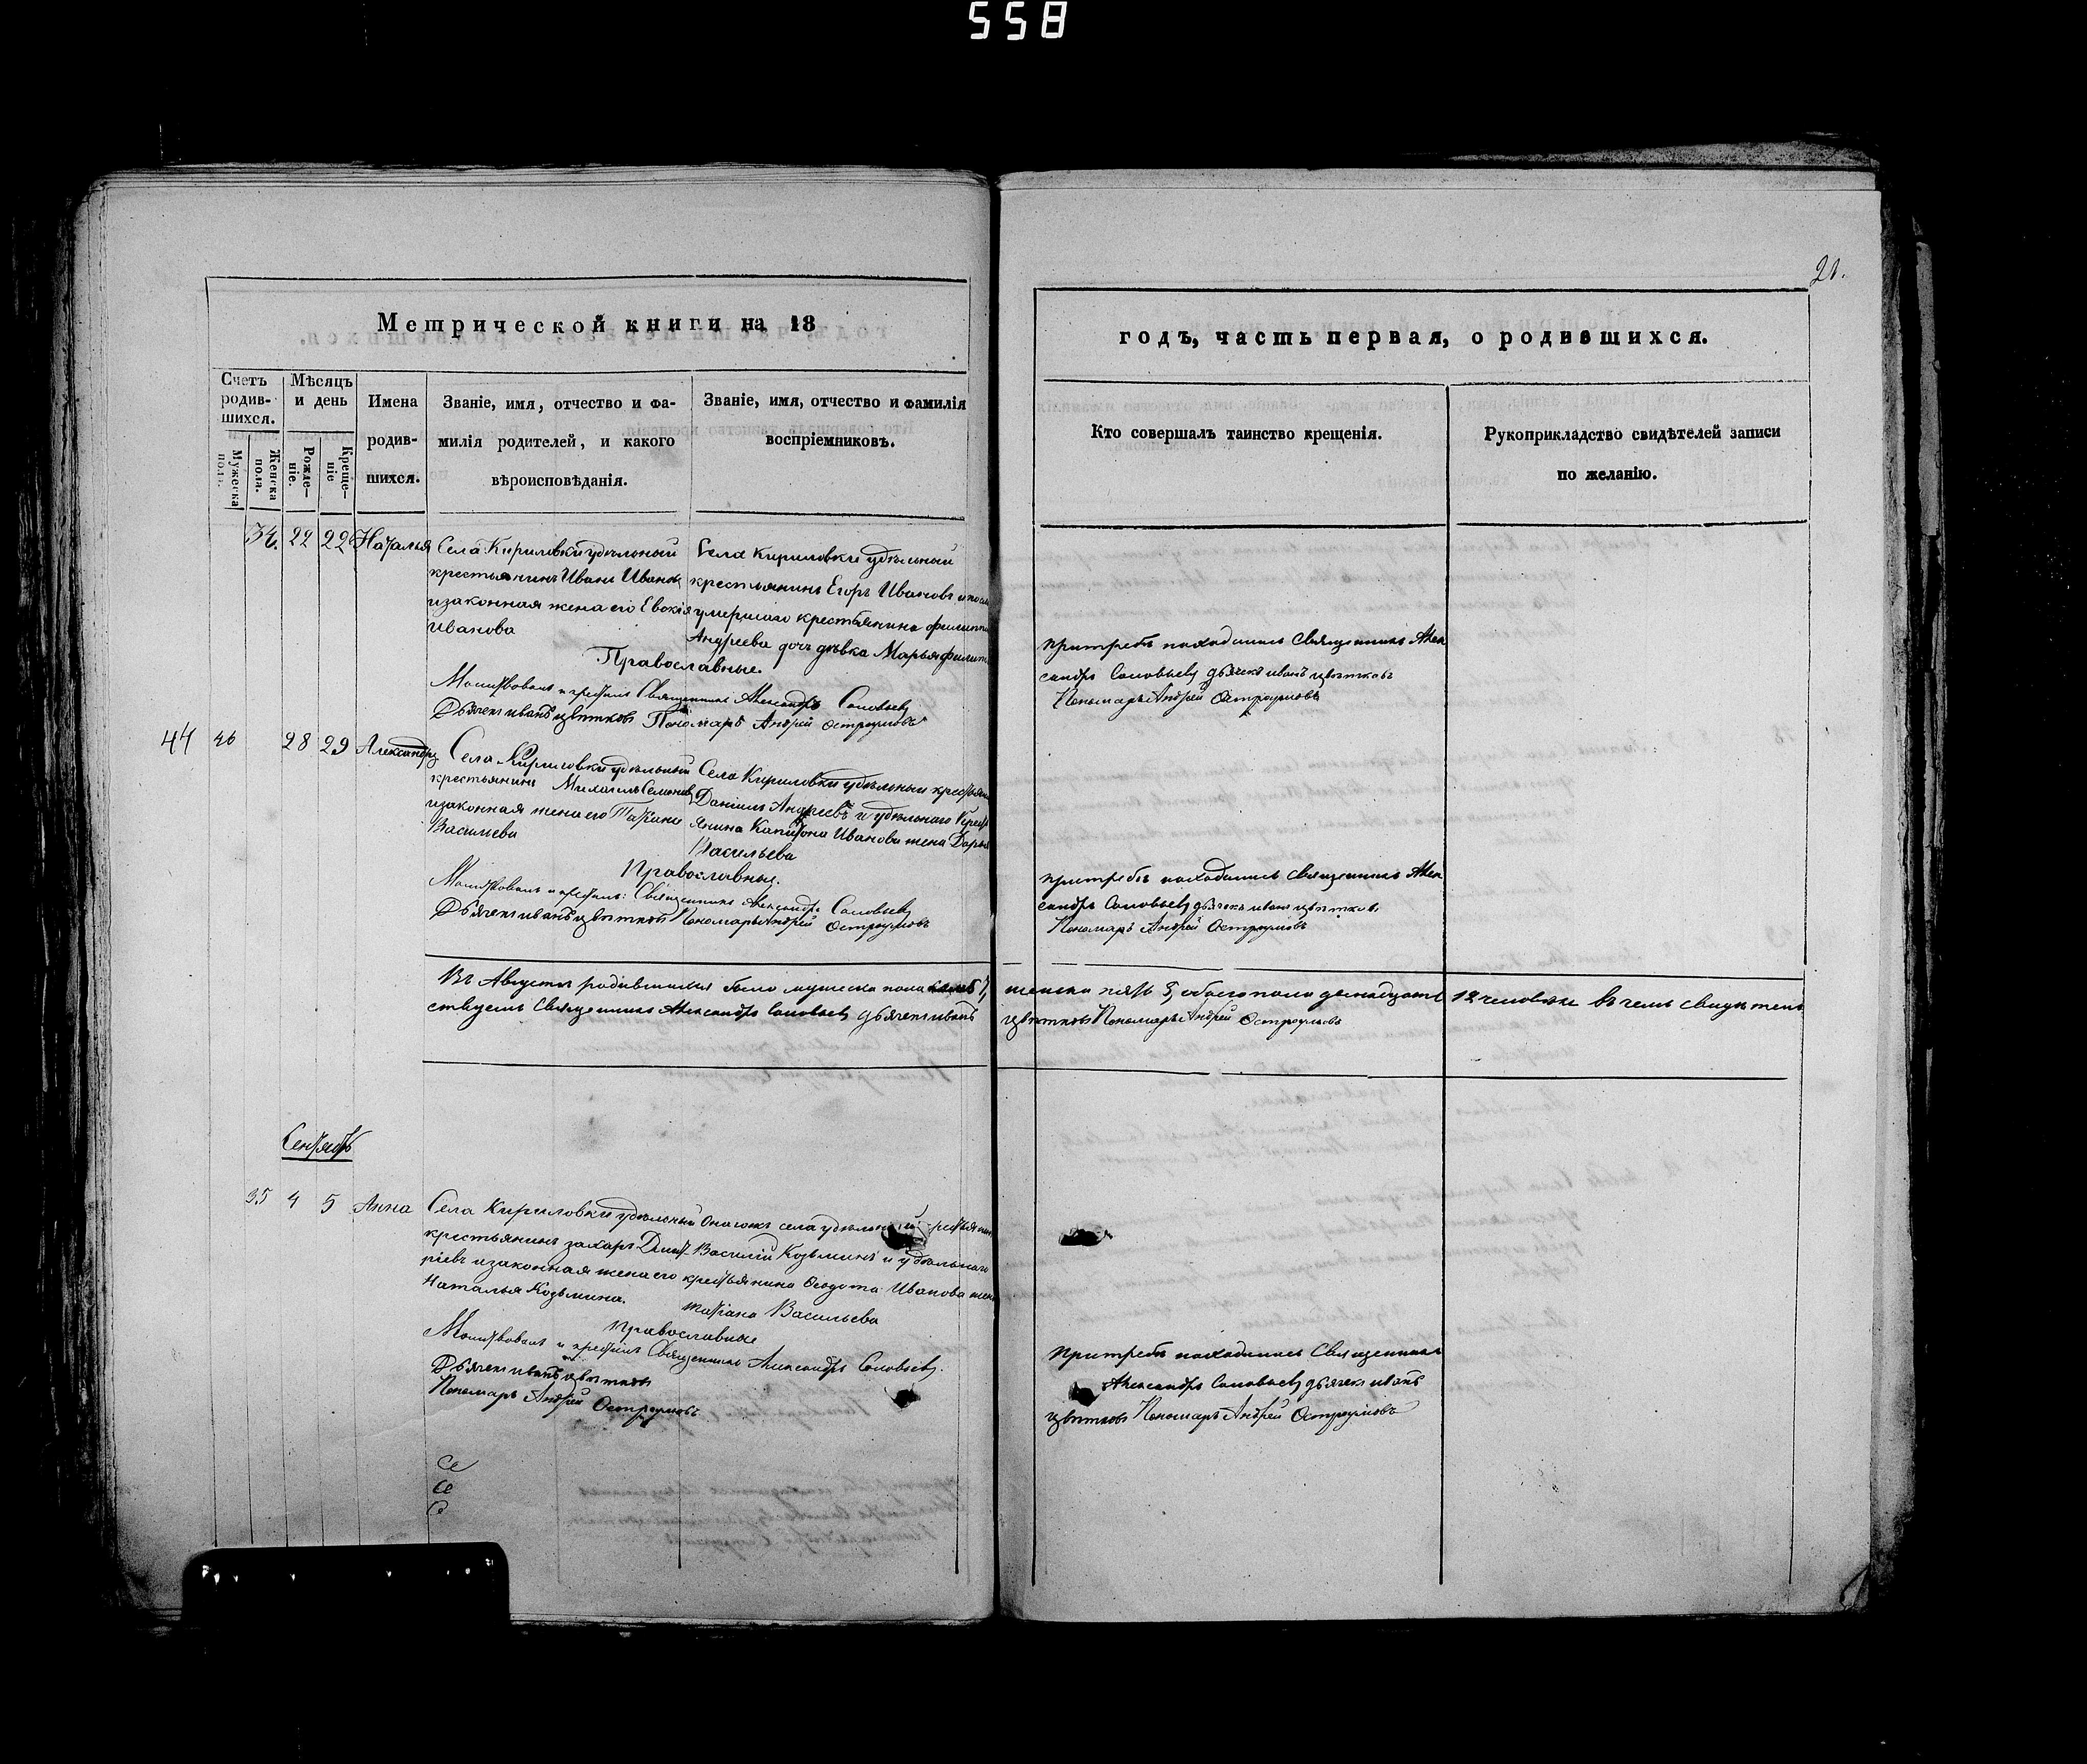 558
21.
Метрической книги на 18
годъ, часть первая, о родившихся.
Счетъ родив-шихся.
Мужеска пола.
Женска пола.
Мѣсяцъ и день
Рожде-ніе.
Креще-ніе
Имена родив-шихся.
Званіе, имя, отчество и фа-
милія родителей, и какого
вѣроисповѣданія.
Званіе, имя, отчество и фамилія
воспріемниковъ.
Кто совершалъ таинство крещенія.
Рукоприкладство свидѣтелей записи
по желанію.
34. 22 22 Наталья
Села Кириловки удѣльный
крестьянинъ Иванъ Ивановъ
и законная жена его Евокія
Иванова
Села Кириловки удѣльный
крестьянинъ Егоръ Ивановъ и
умершаго крестьянина Филиппа
Андреева дочь дѣвка Марья
Православные.
Молитвовалъ и крестилъ Священникъ Александръ Соловьевъ
Дьячекъ иванъ цвѣтковъ Пономарь Андрей Остроумовъ
При требѣ находились Священникъ Алек
сандръ Соловьевъ дьячекъ иванъ цвѣтковъ
Пономарь Андрей Остроумовъ
44 28 29 Александръ
Села Кириловки удѣльный
крестьянинъ Михаилъ Семеновъ
и законная жена его Татiана
Васильева
Села Кириловки удѣльный
Данiилъ Андреевъ и удѣльнаго крест
янина Капитона Иванова жена Дарья
Васильева
Православные.
Молитвовалъ и крестилъ: Священникъ Александръ Соловьевъ
Дьячекъ иванъ цвѣтковъ Пономарь Андрей Остроумовъ
При требѣ находились Священникъ Алек
сандръ Соловьевъ дьячекъ иванъ цвѣтковъ
Пономарь Андрей Остроумовъ
Въ Августѣ родившихся было мужеска пола 7, женска пять 5, обоего пола двенадцать 12 человѣкъ въ чемъ свидѣтель
ствуемъ Священникъ Александръ Соловьевъ дьячекъ иванъ цвѣтковъ Пономарь Андрей Остроумовъ
Сентябрь
35 4 5 Анна
Села Кириловки удѣльный
крестьянинъ захаръ Дмит
ріевъ и законная жена его
Наталья Козьмина.
села
Василій Козьминъ и удѣльнаго
крестьянина Ѳеодота Иванова жена
татiана Васильева
православные
Молитвовалъ и крестилъ Священникъ Александръ Соловьевъ.
Дьячекъ иванъ цвѣтковъ
Пономарь Андрей Остроумовъ
При требѣ находились Священникъ
Александръ Соловьевъ дьячекъ иванъ
цвѣтковъ Пономарь Андрей Остроумовъ
Се
Се